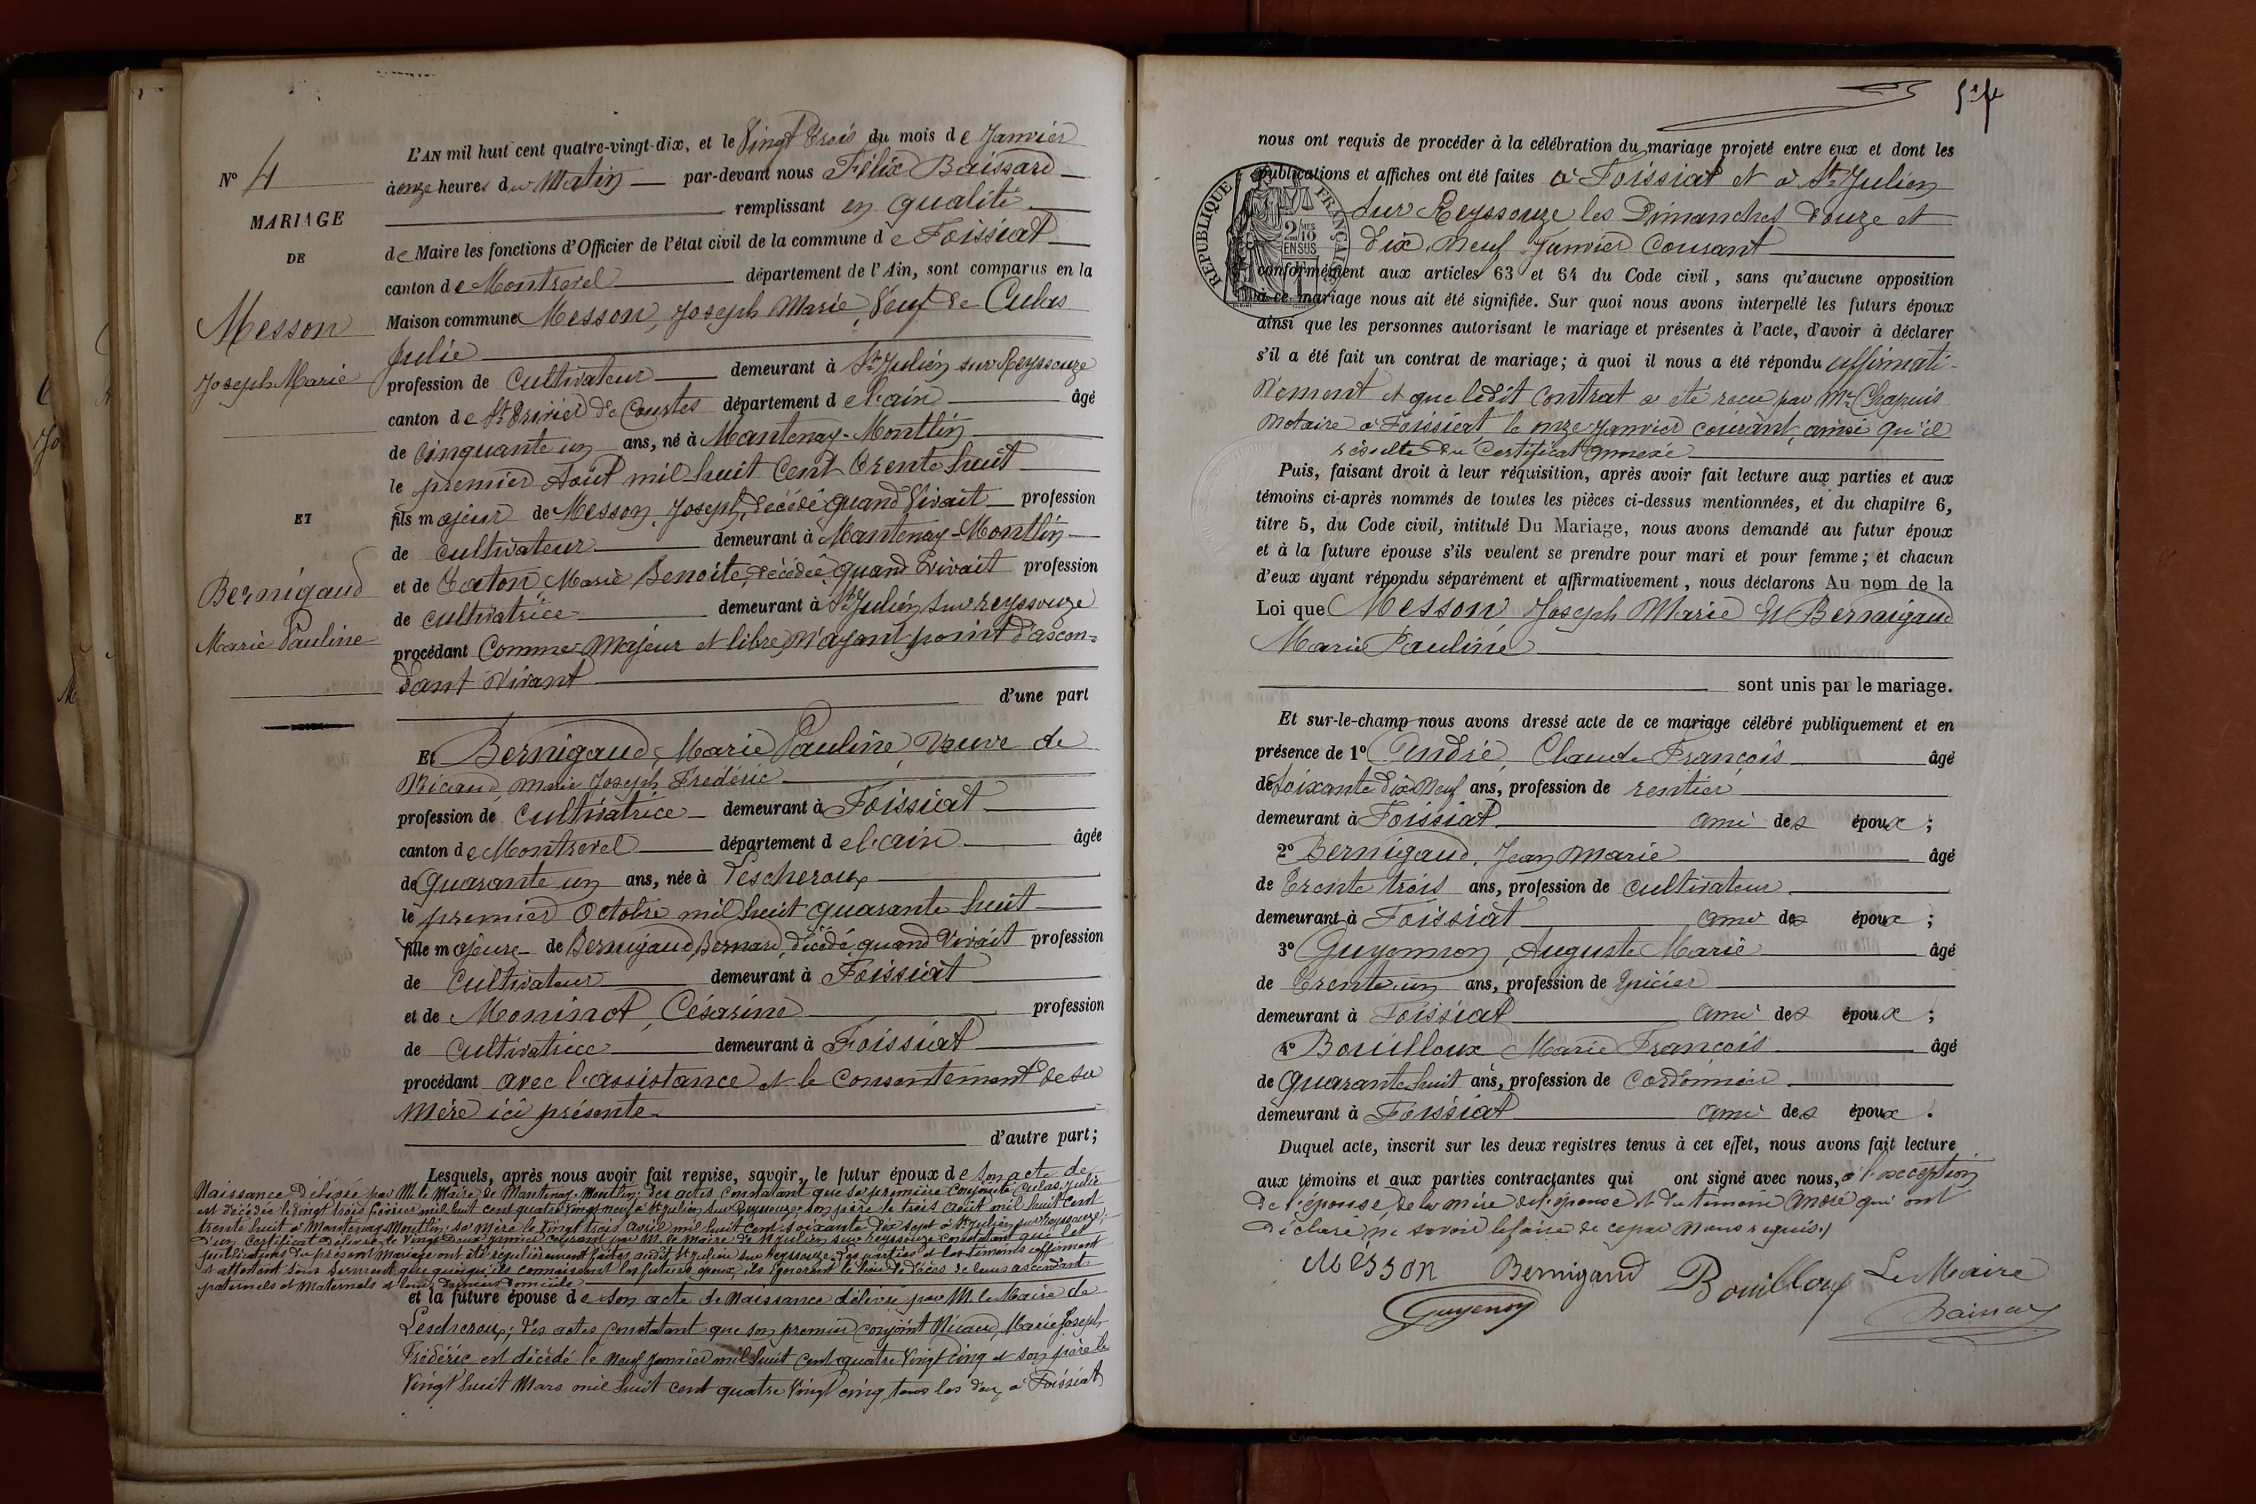 L'AN mil huit cent quatre-vingt-dix, et le Vingt trois du mois de Janvier
N° 4
à onze heures du Matin par-devant nous Félix Baissard
MARIAGE
remplissant en qualité
de Maire les fonctions d'Officier de l'état civil de la commune de Foissiat
DE
canton de Montrevel département de l'Ain, sont comparus en la
Messon
Maison commune Messon, Joseph Marie, Veuf de Culas
Julie
Joseph Marie
profession de Cultivateur demeurant à St Julien sur Reyssouze
canton de St Trivier de Courtes département de l'ain âgé
de Cinquante un ans, né à Mantenay-Montlin
le premier Août mil huit Cent trente huit
ET
fils majeur de Messon, Joseph, décédé quand Vivait profession
de cultivateur demeurant à Mantenay-Montlin
Bernigaud
et de Caton, Marie Benoite, décédée quand Vivait profession
de cultivatrice demeurant à St Julien sur reyssouze
Marie Pauline
procédant Comme Majeur et libre, N'ayant point d'ascen-
dant Vivant
d'une part
Et Bernigaud, Marie Pauline, Veuve de
Nicaud, Marie Joseph Frédéric
profession de Cultivatrice demeurant à Foissiat
canton de Montrevel département de l'ain âgée
de quarante un ans, née à Lescheroux
le premier Octobre mil huit quarante huit
fille majeure de Bernigaud, Bernard, décédé quand Vivait profession
de Cultivateur demeurant à Foissiat
et de Moninot, Césarine profession
de Cultivatrice demeurant à Foissiat
procédant avec l'assistance et le Consentement de sa
Mère ici présente
d'autre part;
Lesquels, après nous avoir fait remise, savoir, le futur époux de son acte de
Naissance délivré par M. le Maire de Mantenay-Montlin; des actes constatant que sa première conjointe Culas, Julie
est décédée le vingt trois février mil huit cent quatre vingt neuf à St Julien sur Reyssouze, son père le trois août mil huit cent
trente huit à Mantenay-Montlin; sa mère le Vingt trois avril mil huit cent soixante dix sept à St Julien sur Reyssouze;
d'un Certificat délivré le Vingt deux Janvier courant par M. le Maire de St Julien sur Reyssouze constatant que les
publications du présent Mariage ont été régulièrement faites audit St Julien sur Reyssouze. Les parties et les témoins affirment
et attestent sous serment que quoiqu'ils connaissent les futurs époux, ils ignorent le lieu de décès de leurs ascendants
paternels et Maternels et leurs derniers domiciles
et la future épouse de son acte de Naissance délivré par M. le Maire de
Lescheroux; des actes constatant que son premier conjoint Nicaud, Marie Joseph
Frédéric est décédé le Neuf Janvier mil huit cent quatre Vingt cinq et son père le
Vingt huit Mars mil huit cent quatre Vingt cinq tous les deux à Foissiat
nous ont requis de procéder à la célébration du mariage projeté entre eux et dont les
publications et affiches ont été faites à Foissiat et à St Julien
sur Reyssouze les Dimanches douze et
dix neuf Janvier Courant
RÉPUBLIQUE FRANÇAISE
2/10 EN SUS
conformément aux articles 63 et 64 du Code civil, sans qu'aucune opposition
à ce mariage nous ait été signifiée. Sur quoi nous avons interpellé les futurs époux
ainsi que les personnes autorisant le mariage et présentes à l'acte, d'avoir à déclarer
s'il a été fait un contrat de mariage; à quoi il nous a été répondu affirmati-
Vement et que ledit Contrat a été reçu par Me Chapuis
Notaire à Foissiat le onze Janvier courant, ainsi qu'il
résulte du Certificat annexé
Puis, faisant droit à leur réquisition, après avoir fait lecture aux parties et aux
témoins ci-après nommés de toutes les pièces ci-dessus mentionnées, et du chapitre 6,
titre 5, du Code civil, intitulé Du Mariage, nous avons demandé au futur époux
et à la future épouse s'ils veulent se prendre pour mari et pour femme; et chacun
d'eux ayant répondu séparément et affirmativement, nous déclarons Au nom de la
Loi que Messon Joseph Marie Et Bernigaud
Marie Pauline
sont unis par le mariage.
Et sur-le-champ nous avons dressé acte de ce mariage célébré publiquement et en
présence de 1° André, Claude François âgé
de soixante dix Neuf ans, profession de rentier
demeurant à Foissiat ami des époux;
2° Bernigaud, Jean Marie âgé
de trente trois ans, profession de cultivateur
demeurant à Foissiat ami des époux;
3° Guyennon, Auguste Marie âgé
de trente un ans, profession de Epicier
demeurant à Foissiat ami des époux;
4° Bouilloux Marie François âgé
de quarante huit ans, profession de Cordonnier
demeurant à Foissiat ami des époux.
Duquel acte, inscrit sur les deux registres tenus à cet effet, nous avons fait lecture
aux témoins et aux parties contractantes qui ont signé avec nous, à l'exception
de l'épouse de la mère de l'épouse et du témoin André qui ont
déclaré ne savoir le faire de ce par Nous requis.
Messon Bernigaud Bouilloux Le Maire
Guyenon Baissard